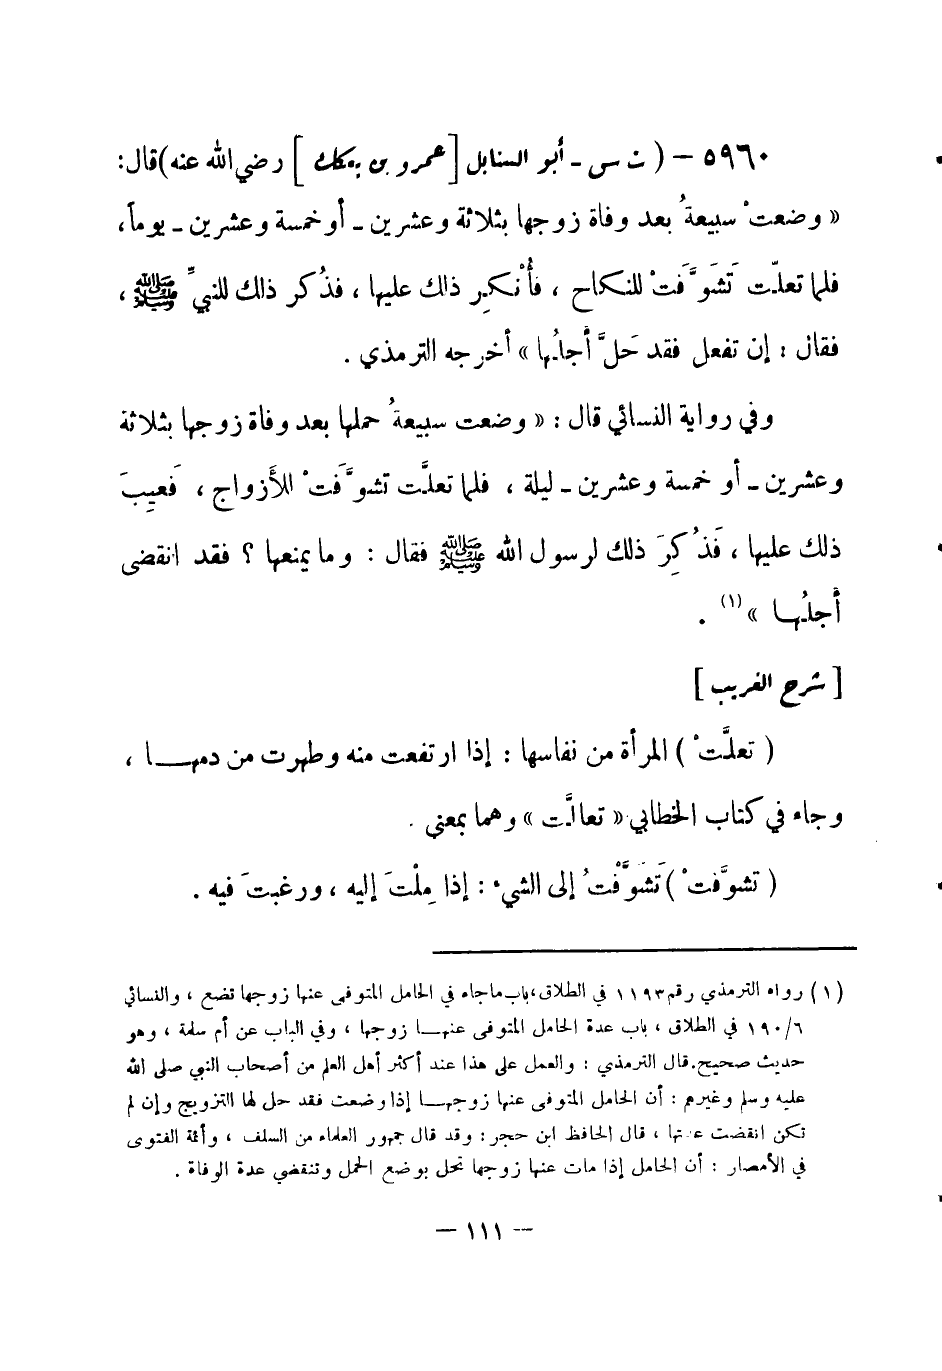 ٥٩٦٠ – ( ت س - أبو السنابل [ عمرو بن بعكك ] رضي الله عنه ) قال :
« وضعتْ سبيعةُ بعد وفاة زوجها بثلاثة وعشرين - أو خمسة وعشرين - يوماً ،
فلما تعلّت تَشَوَّفَتْ للنكاح ، فأُنْكِر ذلك عليها ، فذُكر ذلك للنبيِّ ﷺ ،
فقال : إن تفعل فقد حَلَّ أجلُها » أخرجه الترمذي .
وفي رواية النسائي قال : « وضعت سبيعةُ حملها بعد وفاة زوجها بثلاثة
وعشرين - أو خمسة وعشرين - ليلة ، فلما تعلَّت تشوَّفَتْ للأزواج ، فَعِيبَ
ذلك عليها ، فَذُكِرَ ذلك لرسول الله ﷺ فقال : وما يمنعها ؟ فقد انقضى
أجلُها » (١) .
[ شرح الغريب ]
( تعلَّتْ ) المرأة من نفاسها : إذا ارتفعت منه وطهرت من دمها ،
وجاء في كتاب الخطابي « تعالَّت » وهما بمعنى .
( تشوَّفتْ ) تَشَوَّفْتُ إلى الشيء : إذا مِلْتَ إليه ، ورغبتَ فيه .
(١) رواه الترمذي رقم ١١٩٣ في الطلاق ، باب ماجاء في الحامل المتوفى عنها زوجها تضع ، والنسائي
٦/ ١٩٠ في الطلاق ، باب عدة الحامل المتوفى عنها زوجها ، وفي الباب عن أم سلمة ، وهو
حديث صحيح . قال الترمذي : والعمل على هذا عند أكثر أهل العلم من أصحاب النبي صلى الله
عليه وسلم وغيرهم : أن الحامل المتوفى عنها زوجها إذا وضعت فقد حل لها التزويج وإن لم
تكن انقضت عدتها ، قال الحافظ ابن حجر : وقد قال جمهور العلماء من السلف ، وأئمة الفتوى
في الأمصار : أن الحامل إذا مات عنها زوجها تحل بوضع الحمل وتنقضي عدة الوفاة .
– ١١١ –